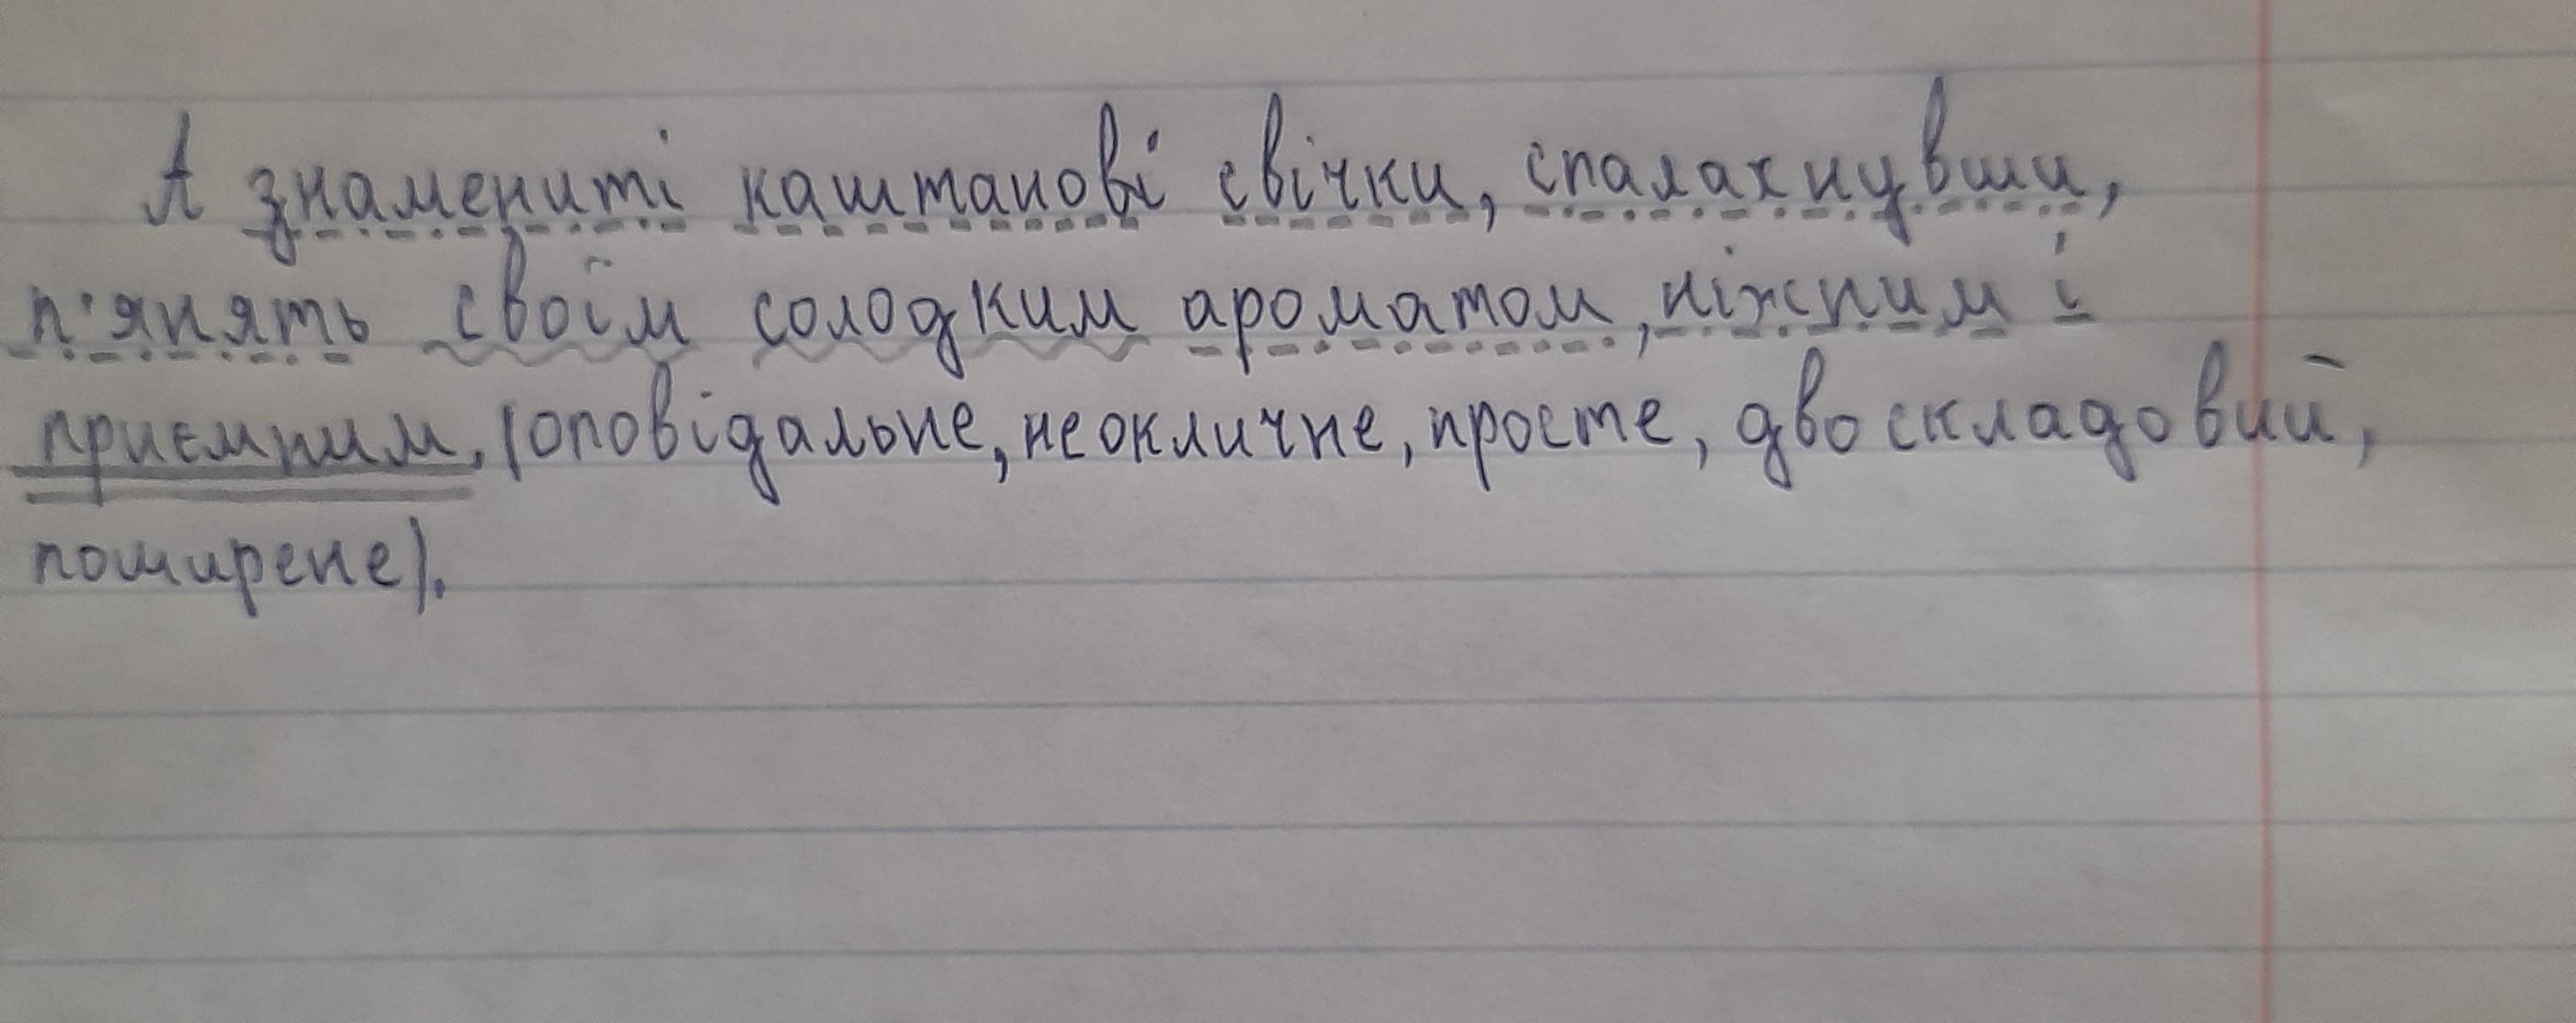 А знамениті каштанові свічки, спалахнувши,
п'янять своїм солодким ароматом, ніжним і
приємним, (оповідальне, неокличне, просте, двоскладовий,
поширене).